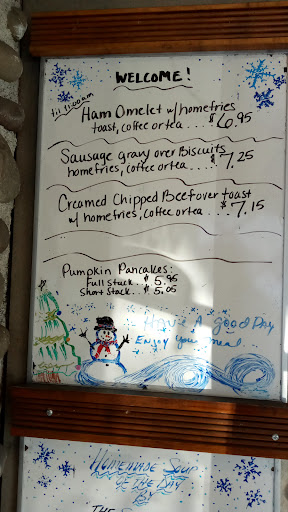 WELCOME!
til 11:00am
Ham Omelet w/homefries
toast, coffee or tea .... $6.95
Sausage gravy over Biscuits
homefries, coffee or tea .... $7.25
Creamed Chipped Beef over toast
w/ homefries, coffee or tea ... $7.15
Pumpkin Pancakes:
Full stack .. $5.95
Short Stack .. $5.05
Have A good Day
Enjoy your meal
Homemade Soup
of the Day
By